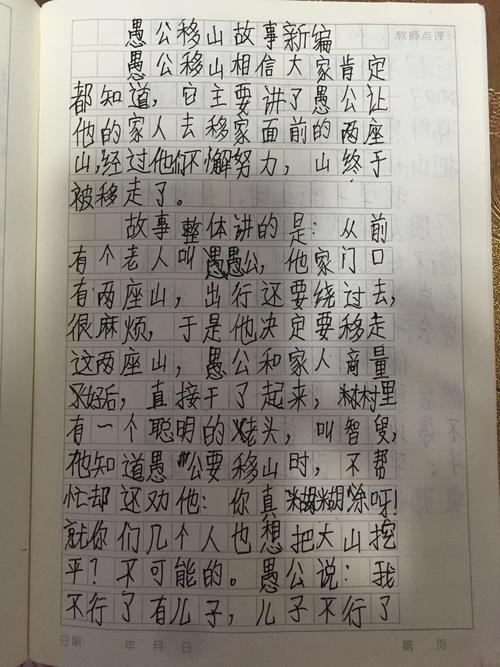 愚公移山故事新编
愚公移山相信大家肯定
都知道，它主要讲了愚公让
他的家人去移家面前的两座
山，经过他们不懈努力，山终于
被移走了。
故事整体讲的是：从前
有个老人叫愚公，他家门口
有两座山，出行还要绕过去，
很麻烦，于是他决定要移走
这两座山，愚公和家人商量
好后，直接干了起来，村里
有一个聪明的老头，叫智叟，
他知道愚公要移山时，不帮
忙却还劝他：你真糊涂呀！
就你们几个人也想把大山挖
平？不可能的。愚公说：我
不行了有儿子，儿子不行了
日期： 年 月 日 第 页